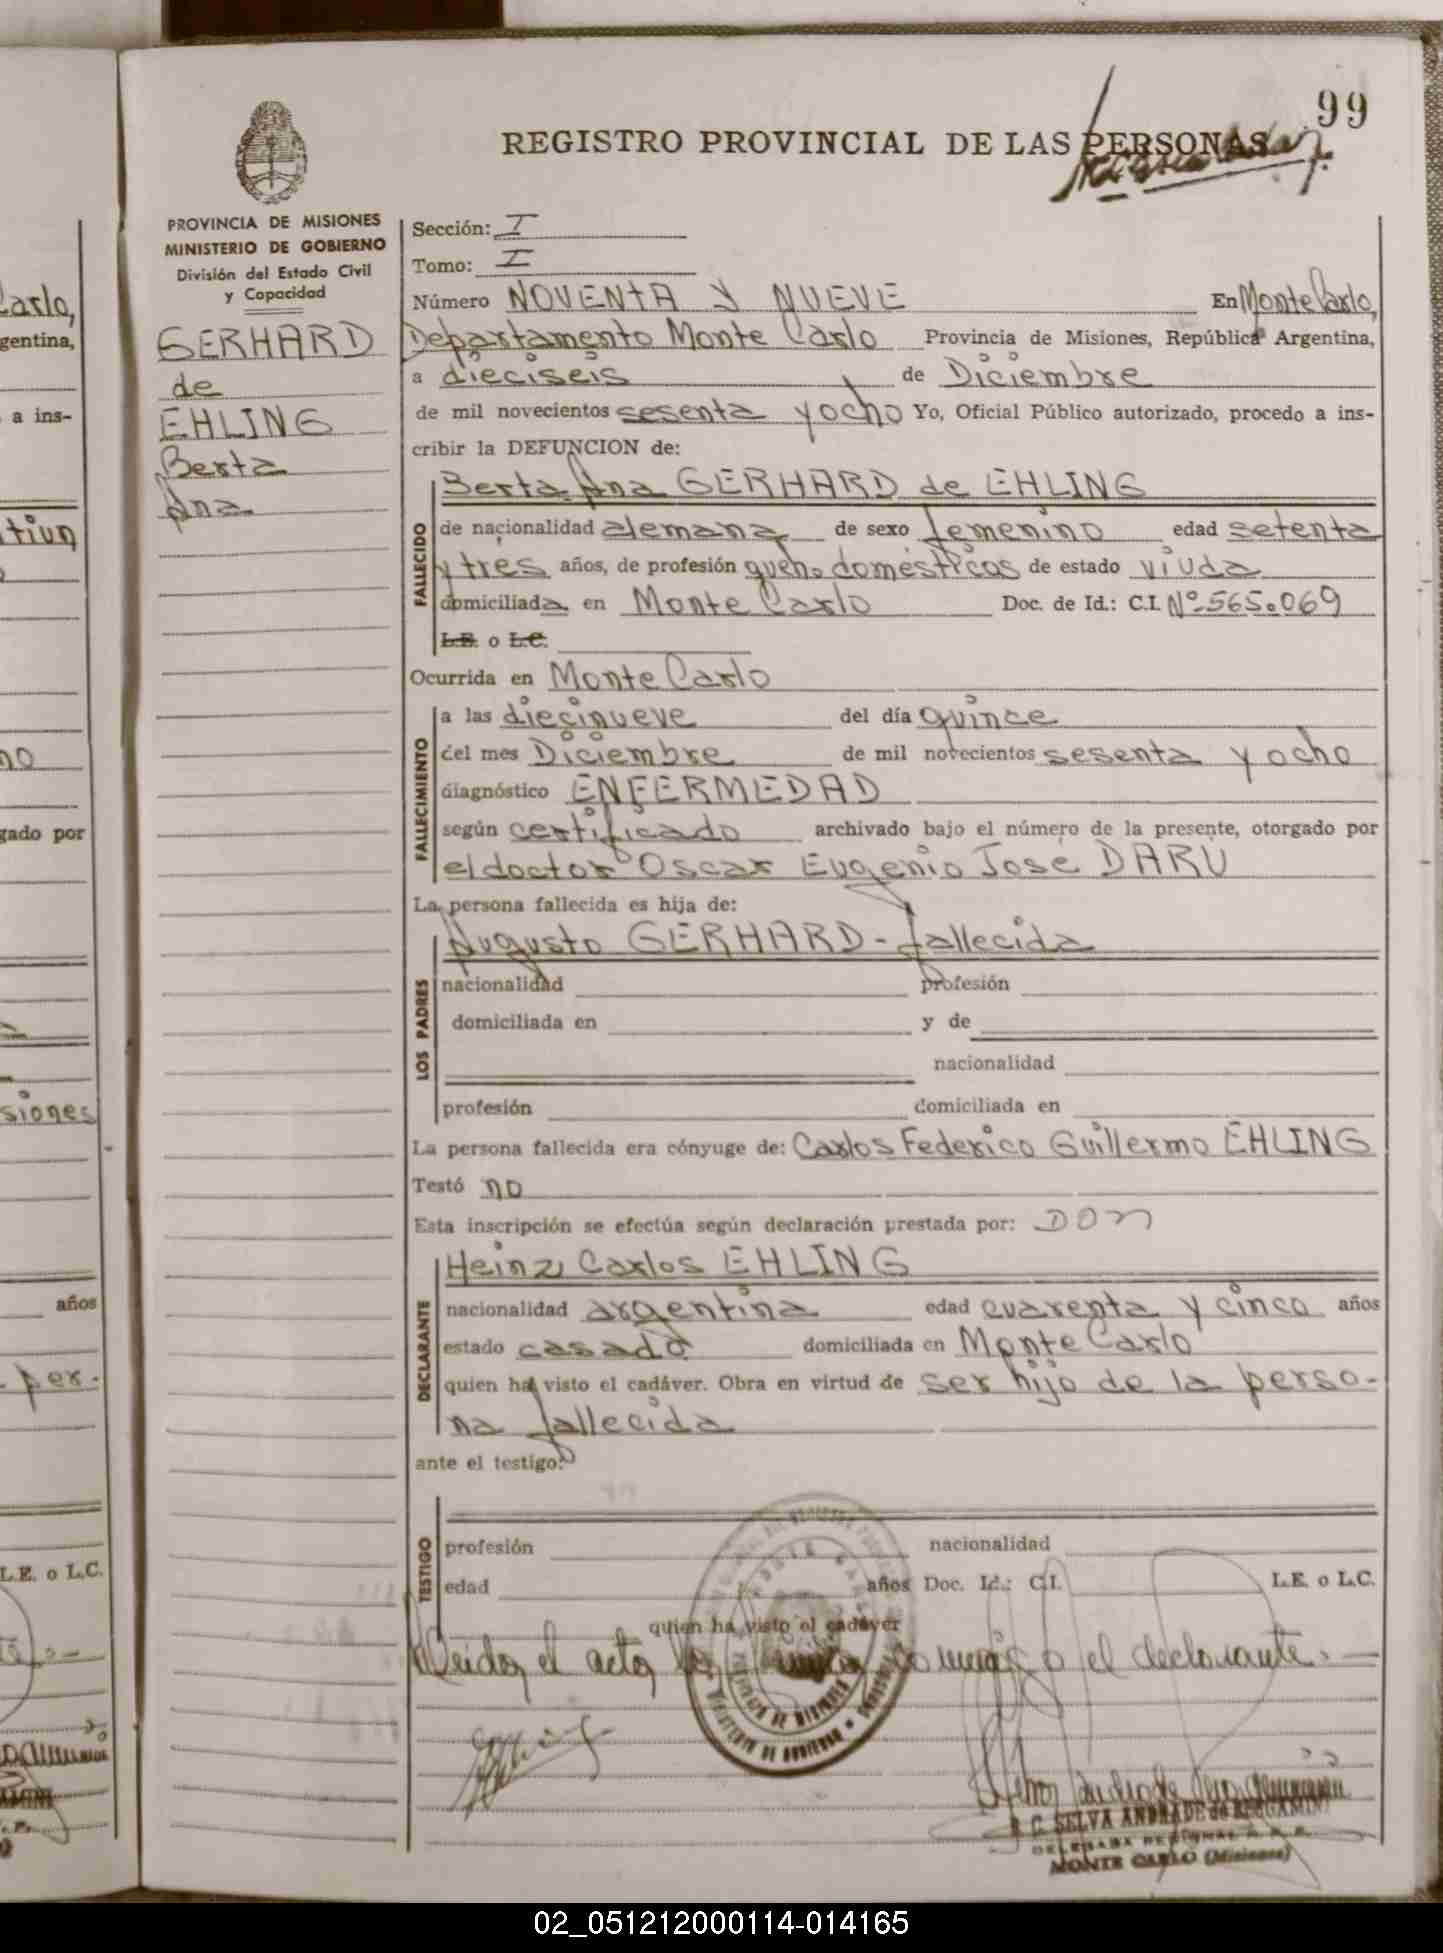 99
REGISTRO PROVINCIAL DE LAS PERSONAS
PROVINCIA DE MISIONES
MINISTERIO DE GOBIERNO
División del Estado Civil
y Capacidad
GERHARD
de
EHLING
Berta
Ana
Sección: I
Tomo: I
Número NOVENTA Y NUEVE En Monte Carlo,
Departamento Monte Carlo Provincia de Misiones, República Argentina,
a dieciseis de Diciembre
de mil novecientos sesenta y ocho Yo, Oficial Público autorizado, procedo a ins-
cribir la DEFUNCION de:
Berta Ana GERHARD de EHLING
FALLECIDO
de nacionalidad alemana de sexo femenino edad setenta
y tres años, de profesión queh. domésticos de estado viuda
domiciliada en Monte Carlo Doc. de Id.: C.I. Nº 565.069
L.E. o L.C.
Ocurrida en Monte Carlo
FALLECIMIENTO
a las diecinueve del día quince
del mes Diciembre de mil novecientos sesenta y ocho
diagnóstico ENFERMEDAD
según certificado archivado bajo el número de la presente, otorgado por
el doctor Oscar Eugenio José DARÚ
La persona fallecida es hija de:
Augusto GERHARD - fallecida
LOS PADRES
nacionalidad profesión
domiciliada en y de
nacionalidad
profesión domiciliada en
La persona fallecida era cónyuge de: Carlos Federico Guillermo EHLING
Testó no
Esta inscripción se efectúa según declaración prestada por: DON
Heinz Carlos EHLING
DECLARANTE
nacionalidad argentina edad cuarenta y cinco años
estado casado domiciliada en Monte Carlo
quien ha visto el cadáver. Obra en virtud de ser hijo de la perso-
na fallecida
ante el testigo:
TESTIGO
profesión nacionalidad
edad años Doc. Id.: C.I. L.E. o L.C.
quien ha visto el cadáver
Leida el acta la conmigo el declarante. —
C. SELVA ANDRADE de BERGAMINI
DELEGADA REGIONAL
MONTE CARLO (Misiones)
arlo,
gentina,
a ins-
no
gado por
siones
años
per-
L.E. o L.C.
02_051212000114-014165